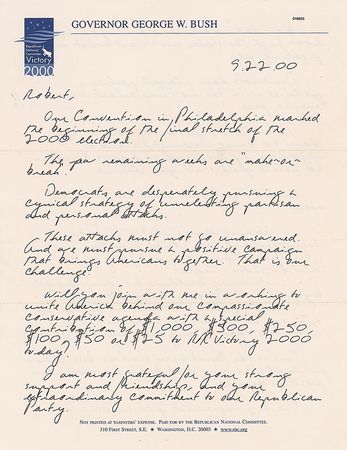 018005
GOVERNOR GEORGE W. BUSH
Republican
National
Committee
Victory
2000
9.22.00
Robert,
Our Convention in Philadelphia marked
the beginning of the final stretch of the
2000 election.
The few remaining weeks are "make-or-
break."
Democrats are desperately pursuing a
cynical strategy of unrelenting partisan
and personal attacks.
These attacks must not go unanswered.
And we must pursue a positive campaign
that brings Americans together. That is our
challenge.
Will you join with me in working to
unite America behind our compassionate
conservative agenda with a special
contribution of $1,000, $500, $250,
$100, $50 or $25 to RNC Victory 2000
today.
I am most grateful for your strong
support and friendship, and your
extraordinary commitment to our Republican
Party.
NOT PRINTED AT TAXPAYERS' EXPENSE. PAID FOR BY THE REPUBLICAN NATIONAL COMMITTEE.
310 FIRST STREET, S.E. ★ WASHINGTON, D.C. 20003 ★ www.rnc.org